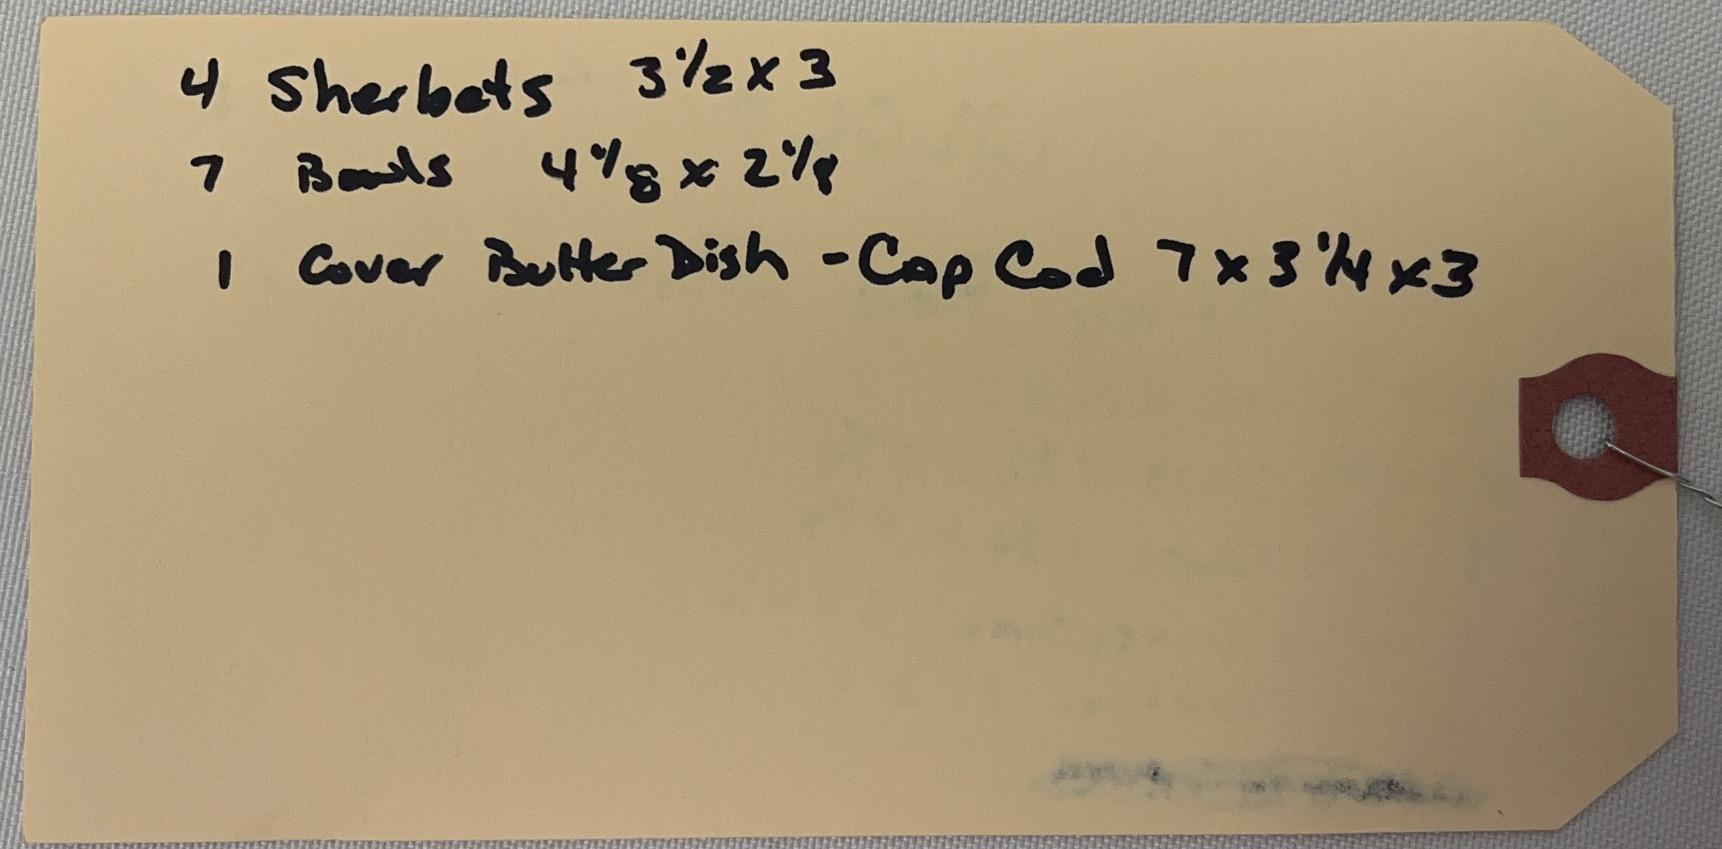 4 Sherbets 3 1/2 x 3
7 Bowls 4 1/8 x 2 1/8
1 Cover Butter Dish - Cap Cod 7 x 3 1/4 x 3